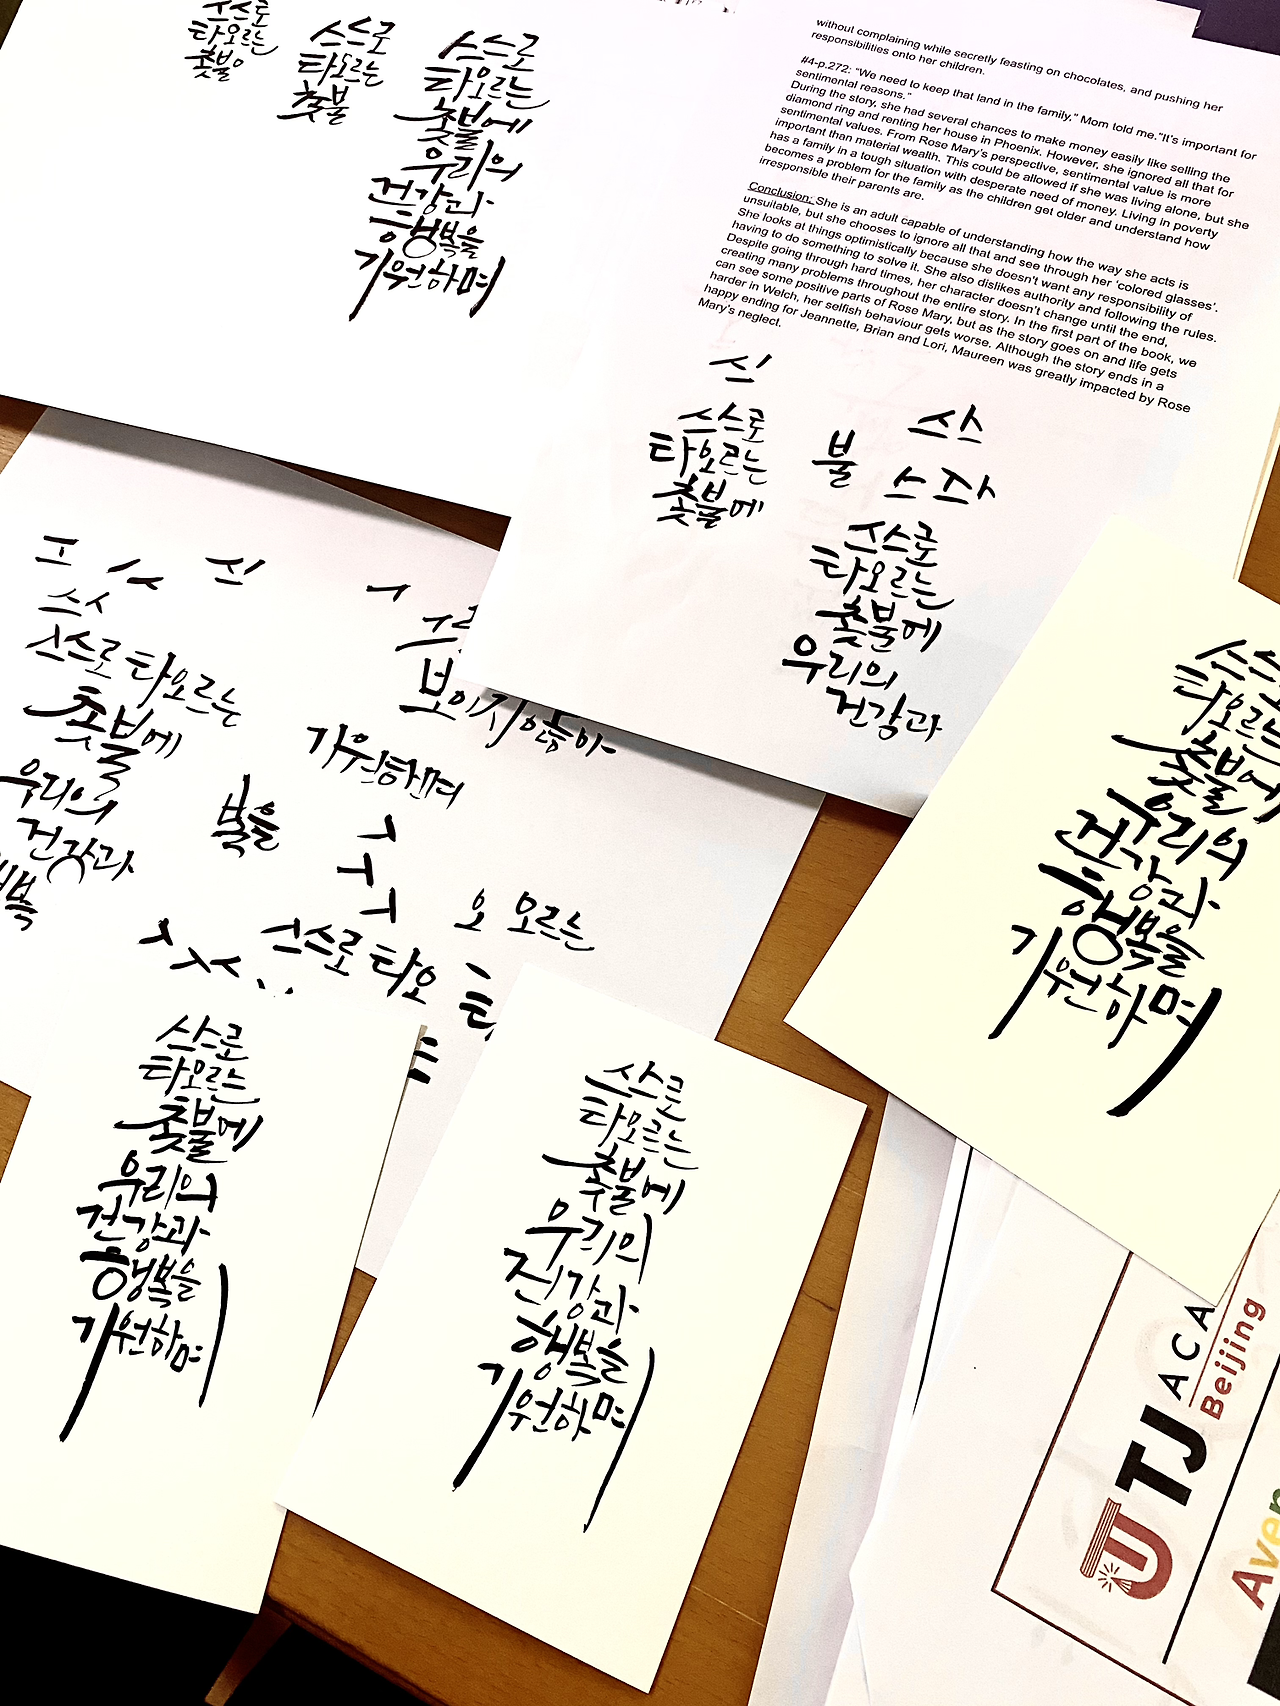 스스로
타오르는
촛불에
스스로
타오르는
촛불
스스로
타오르는
촛불에
우리의
건강과
행복을
기원하며
without complaining while secretly feasting on chocolates, and pushing her
responsibilities onto her children.
#4-p.272: “We need to keep that land in the family,” Mom told me.“It’s important for
sentimental reasons.”
During the story, she had several chances to make money easily like selling the
diamond ring and renting her house in Phoenix. However, she ignored all that for
sentimental values. From Rose Mary’s perspective, sentimental value is more
important than material wealth. This could be allowed if she was living alone, but she
has a family in a tough situation with desperate need of money. Living in poverty
becomes a problem for the family as the children get older and understand how
irresponsible their parents are.
Conclusion: She is an adult capable of understanding how the way she acts is
unsuitable, but she chooses to ignore all that and see through her ‘colored glasses’.
She looks at things optimistically because she doesn’t want any responsibility of
having to do something to solve it. She also dislikes authority and following the rules.
Despite going through hard times, her character doesn’t change until the end,
creating many problems throughout the entire story. In the first part of the book, we
can see some positive parts of Rose Mary, but as the story goes on and life gets
harder in Welch, her selfish behaviour gets worse. Although the story ends in a
happy ending for Jeannette, Brian and Lori, Maureen was greatly impacted by Rose
Mary’s neglect.
신
스스로
타오르는
촛불에
쓰
불
스
스스로
타오르는
촛불에
우리의
건강과
고
신
스스
스스로 타오르는
촛불에
우리의
건강과
행복
복을
기원하며
보이지않아
오 모르는
스스로 타오
스스로
타오르는
촛불에
우리의
건강과
행복을
기원하며
스스로
타오르는
촛불에
우리의
건강과
행복을
기원하며
스스
타오르는
촛불에
우리의
건강과
행복을
기원하며
UTJ ACA
Beijing
Aven